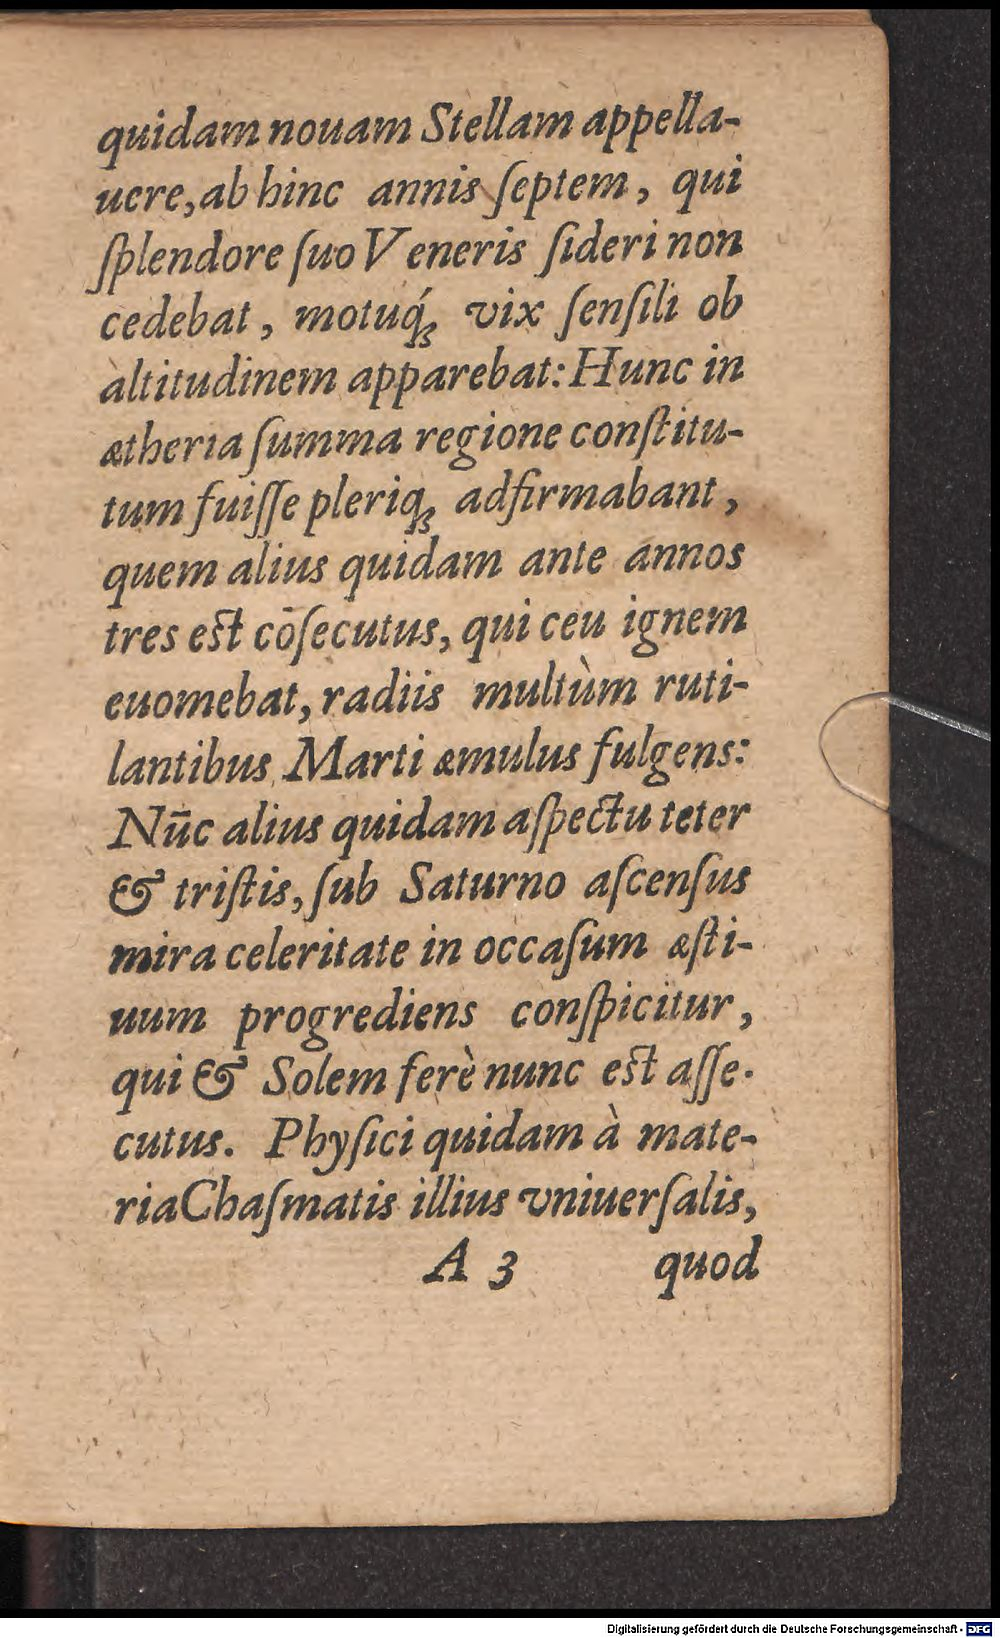 quidam nouam Stellam appella-
uere, ab hinc annis ſeptem, qui
ſplendore ſuo Veneris ſideri non
cedebat, motuq́ꝫ vix ſenſili ob
altitudinem apparebat: Hunc in
ætheria ſumma regione conſtitu-
tum fuiſſe pleriqꝫ adfirmabant,
quem alius quidam ante annos
tres eſt cōſecutus, qui ceu ignem
euomebat, radiis multùm ruti-
lantibus Marti æmulus fulgens:
Nūc alius quidam aſpectu teter
& triſtis, ſub Saturno aſcenſus
mira celeritate in occaſum æſti-
uum progrediens conſpicitur,
qui & Solem ferè nunc eſt aſſe-
cutus. Phyſici quidam à mate-
ria Chaſmatis illius vniuerſalis,
A 3 quod
Digitalisierung gefördert durch die Deutsche Forschungsgemeinschaft - DFG